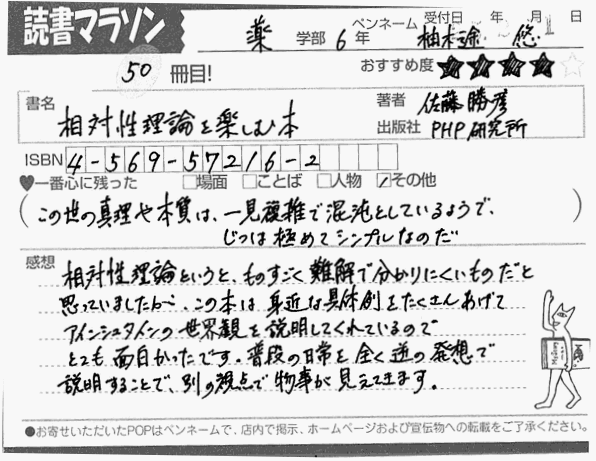 読書マラソン
薬 学部 6年 ペンネーム 柚木涼 悠 受付日 年 月 1日
50 冊目! おすすめ度 ★★★★☆
書名 相対性理論を楽しむ本
著者 佐藤勝彦
出版社 PHP研究所
ISBN 4-569-57216-2
♥一番心に残った □場面 □ことば □人物 ☑その他
(この世の真理や本質は、一見複雑で混沌としているようで、
じつは極めてシンプルなのだ)
感想
相対性理論というと、ものすごく難解で分かりにくいものだと
思っていましたが、この本は身近な具体例をたくさんあげて
アインシュタインの世界観を説明してくれているので
とても面白かったです。普段の日常と全く逆の発想で
説明することで、別の視点で物事が見えてきます。
●お寄せいただいたPOPはペンネームで、店内で掲示、ホームページおよび宣伝物への転載をご了承ください。